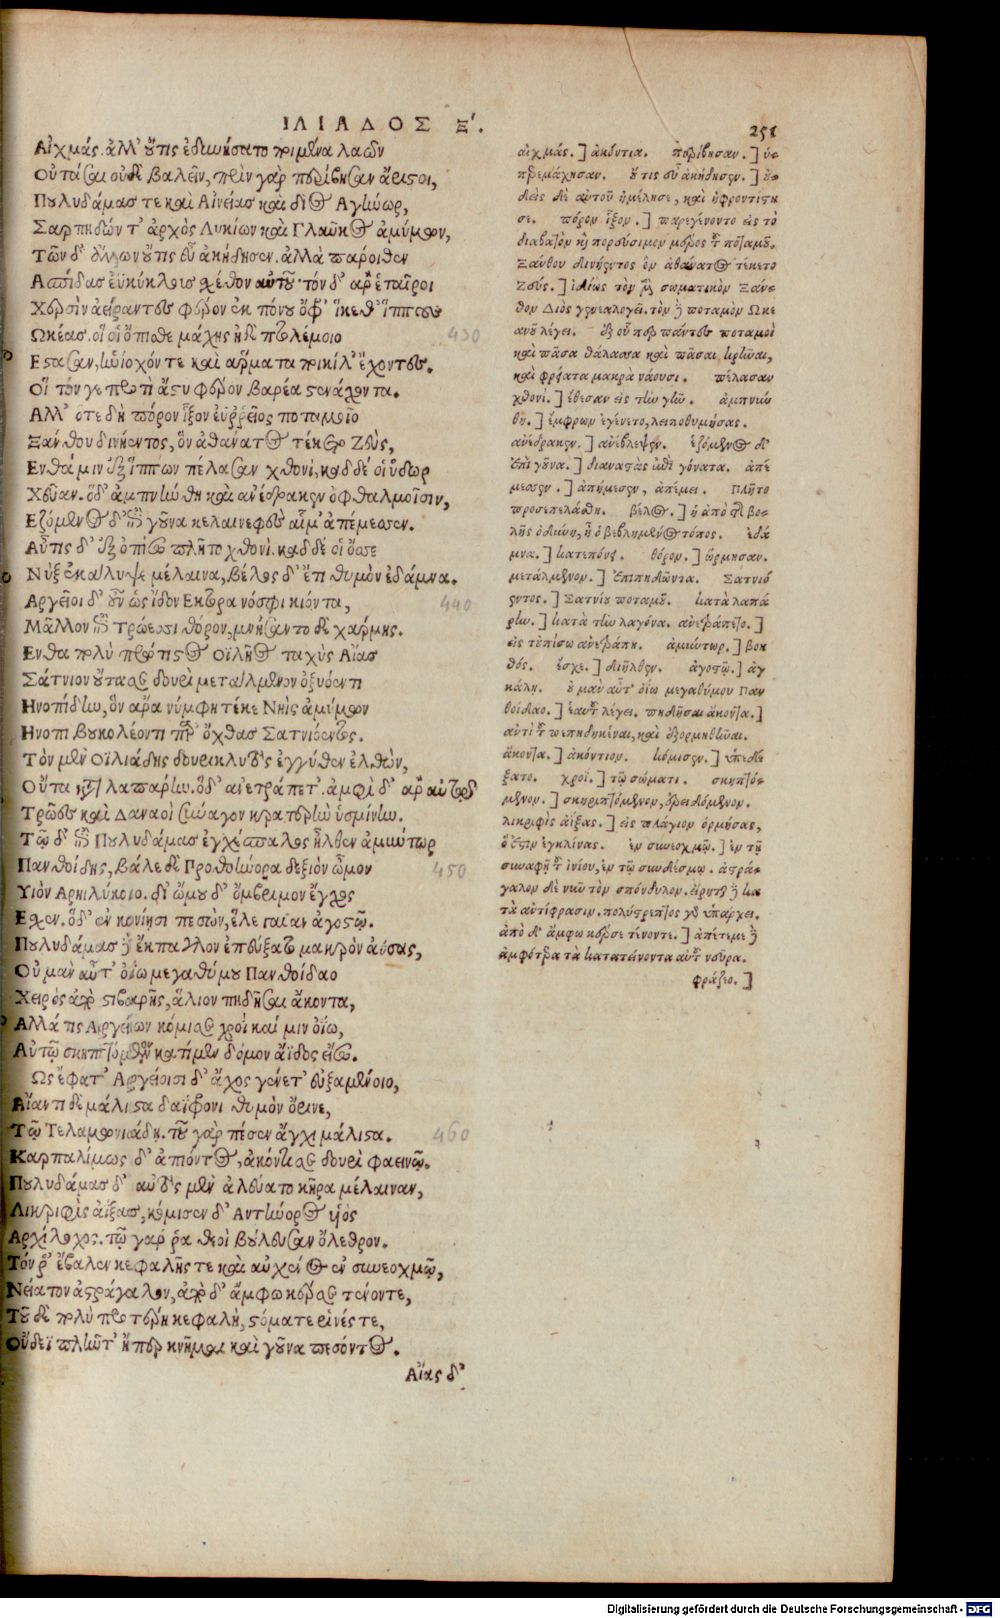 ΙΛΙΑΔΟΣ Ξ'.
251
Αἰχμάς. ἀλλ' οὔτις ἐδυνήσατο ποιμένα λαῶν
Οὐτάσαι οὐδὲ βαλεῖν, πρὶν γὰρ περίβησαν ἄριστοι,
Πουλυδάμας τε καὶ Αἰνείας καὶ δῖος Αγήνωρ,
Σαρπηδών τ' ἀρχὸς Λυκίων καὶ Γλαῦκος ἀμύμων,
Τῶν δ' ἄλλων οὔτις εὗ ἀκήδησεν. ἀλλὰ πάροιθεν
Ασπίδας εὐκύκλους σχέθον αὐτοῦ. τὸν δ' ἄρ' ἑταῖροι
Χερσὶν ἀείραντες φέρον ἐκ πόνου ὄφρ' ἵκεθ' ἵππους
Ωκέας. οἵ οἱ ὄπισθε μάχης ἠδὲ πτολέμοιο
430
Εστασαν, ἡνίοχόν τε καὶ ἅρματα ποικίλ' ἔχοντες.
Οἳ τόν γε προτὶ ἄστυ φέρον βαρέα στενάχοντα.
Αλλ' ὅτε δὴ πόρον ἷξον ἐϋρρεῖος ποταμοῖο
Ξάνθου δινήεντος, ὃν ἀθάνατος τέκετο Ζεὺς,
Ενθά μιν ἐξ ἵππων πέλασαν χθονί, καδδέ οἱ ὕδωρ
Χεῦαν. ὅδ' ἀμπνύνθη καὶ ἀνέδρακεν ὀφθαλμοῖσιν,
Εζόμενος δ' ἐπὶ γοῦνα κελαινεφὲς αἷμ' ἀπέμεσσεν.
Αὖτις δ' ἐξ ὀπίσω πλῆτο χθονί. καδδέ οἱ ὄσσε
Νὺξ ἐκάλυψε μέλαινα, βέλος δ' ἔτι θυμὸν ἐδάμνα.
Αργεῖοι δ' οὖν ὡς ἴδον Εκτορα νόσφι κιόντα,
440
Μᾶλλον ἐπὶ Τρώεσσι θόρον, μνήσαντο δὲ χάρμης.
Ενθα πολὺ πρώτιστος Οϊλῆος ταχὺς Αἴας
Σάτνιον οὔτασε δουρὶ μετάλμενον ὀξυόεντι
Ηνοπίδην, ὃν ἄρα νύμφη τέκε Νηῒς ἀμύμων
Ηνοπι βουκολέοντι παρ' ὄχθας Σατνιόεντος.
Τὸν μὲν Οϊλιάδης δουρικλυτὸς ἐγγύθεν ἐλθὼν,
Οὖτα κατὰ λαπάρην. ὅδ' ἀνετράπετ'. ἀμφὶ δ' ἄρ' αὐτῷ
Τρῶες καὶ Δαναοὶ σύναγον κρατερὴν ὑσμίνην.
Τῷ δ' ἐπὶ Πουλυδάμας ἐγχέσπαλος ἦλθεν ἀμύντωρ
Πανθοίδης, βάλε δὲ Προθοήνορα δεξιὸν ὦμον
450
Υἱὸν Αρηιλύκοιο. δι' ὤμου δ' ὄμβριμον ἔγχος
Εσχεν. ὅδ' ἐν κονίῃσι πεσὼν, ἕλε γαῖαν ἀγοστῷ.
Πουλυδάμας δ' ἔκπαγλον ἐπεύξατο μακρὸν ἀΰσας,
Οὐ μὰν αὖτ' ὀΐω μεγαθύμου Πανθοίδαο
Χειρὸς ἄπο στιβαρῆς, ἅλιον πηδῆσαι ἄκοντα,
Αλλά τις Αργείων κόμισε χροΐ καί μιν ὀΐω,
Αὐτῷ σκηπτόμενον κατίμεν δόμον ἄϊδος εἴσω.
Ως ἔφατ'. Αργείοισι δ' ἄχος γένετ' εὐξαμένοιο,
Αἴαντι δὲ μάλιστα δαΐφρονι θυμὸν ὄρινε,
Τῷ Τελαμωνιάδῃ. τοῦ γὰρ πέσεν ἄγχι μάλιστα.
460
Καρπαλίμως δ' ἀπιόντος, ἀκόντισε δουρὶ φαεινῷ.
Πουλυδάμας δ' αὐτὸς μὲν ἀλεύατο κῆρα μέλαιναν,
Λικριφὶς ἀΐξας, κόμισεν δ' Αντήνορος υἱὸς
Αρχίλοχος. τῷ γάρ ῥα θεοὶ βούλευσαν ὄλεθρον.
Τόν ῥ' ἔβαλεν κεφαλῆς τε καὶ αὐχένος ἐν συνεοχμῷ,
Νείατον ἀστράγαλον, ἀπὸ δ' ἄμφω κέρσε τένοντε,
Τοῦ δὲ πολὺ προτέρη κεφαλὴ, στόματε ῥινές τε,
Οὔδεϊ πλῆντ' ἤπερ κνῆμαι καὶ γοῦνα πεσόντος.
Αἴας δ'
αἰχμάς.] ἀκόντια. περίβησαν.] ὑ-
περεμάχησαν. οὔτις εὗ ἀκήδησεν.] οὐ-
δεὶς δὲ αὐτοῦ ἠμέλησε, καὶ ἠφροντίστη
σε. πόρον ἷξον.] παρεγένοντο εἰς τὸ
διαβατὸν καὶ πορεύσιμον μέρος τοῦ ποταμοῦ.
Ξάνθου δινήεντος ὃν ἀθάνατος τέκετο
Ζεύς.] ἰδίως τὸν μὲν σωματικὸν Ξάν-
θον Διὸς γενεαλογεῖ. τὸν δὲ ποταμὸν Ωκε
ανοῦ λέγει. ἐξ οὗ περ πάντες ποταμοὶ
καὶ πᾶσα θάλασσα καὶ πᾶσαι κρῆναι,
καὶ φρείατα μακρὰ νάουσι. πέλασαν
χθονί.] ἔθεσαν εἰς τὴν γῆν. ἀμπνύν
θη.] ἔμφρων ἐγένετο, λειποθυμήσας.
ἀνέδρακεν.] ἀνέβλεψεν. ἑζόμενος δ'
ἐπὶ γοῦνα.] διαναστὰς ἐπὶ γόνατα. ἀπέ
μεσσεν.] ἀπήμεσεν, ἀπέμει. πλῆτο
προσεπελάσθη. βέλος.] ἡ ἀπὸ τῆς βο-
λῆς ὀδύνη, ἢ ὁ βεβλημένος τόπος. ἐδά
μνα.] κατεπόνει. θόρον.] ὥρμησαν.
μετάλμενον.] ἐπιπηδῶντα. Σατνιό
εντος.] Σατνίου ποταμοῦ. κατὰ λαπά
ρην.] κατὰ τὴν λαγόνα. ἀνετράπετο.]
εἰς τοὐπίσω ἀνετράπη. ἀμύντωρ.] βοη
θός. ἔσχε.] διῆλθεν. ἀγοστῷ.] ἀγ
κάλῃ. οὐ μὰν αὖτ' ὀΐω μεγαθύμου Παν
θοίδαο.] ἑαυτὸν λέγει. πηδῆσαι ἄκοντα.]
ἀντὶ τοῦ πεπηδηκέναι, καὶ ἐξορμηθῆναι.
ἄκοντα.] ἀκόντιον. κόμισεν.] ὑπεδέ
ξατο. χροΐ.] τῷ σώματι. σκηπτό-
μενον.] σκηριπτόμενον, ἐρειδόμενον.
λικριφὶς ἀΐξας.] εἰς πλάγιον ὁρμήσας,
ὅ ἐστιν ἐγκλίνας. ἐν συνεοχμῷ.] ἐν τῇ
συναφῇ τοῦ ἰνίου, ἐν τῷ συνδέσμῳ. ἀστρά-
γαλον δὲ νῦν τὸν σπόνδυλον. εἴρηται δὲ κα
τὰ ἀντίφρασιν. πολύτρεπτος γὰρ ὑπάρχει.
ἀπὸ δ' ἄμφω κέρσε τένοντε.] ἀπέτεμε δὲ
ἀμφότερα τὰ κατατείνοντα αὐτοῦ νεῦρα.
φράζεο.]
Digitalisierung gefördert durch die Deutsche Forschungsgemeinschaft - DFG